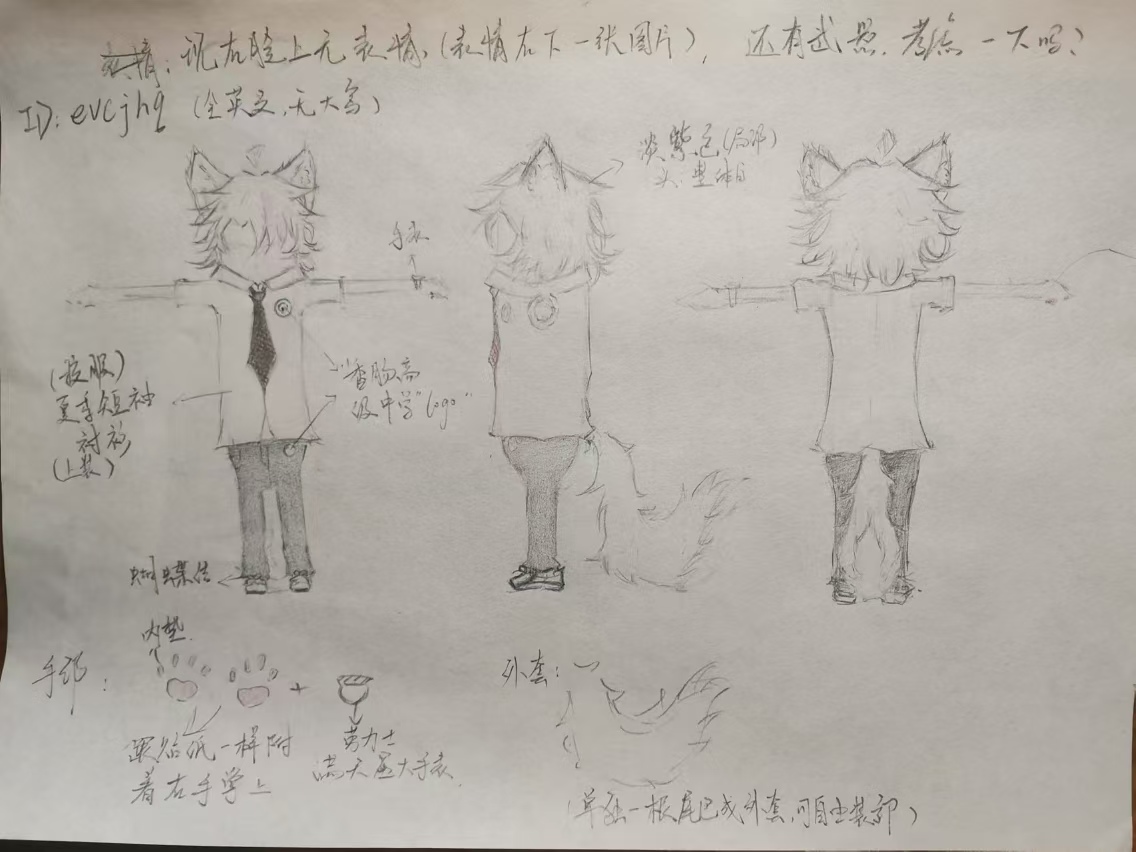 表情：现在脸上无表情（表情在下一张图片），还有武器.考虑一下吗？
ID：evcjhq（全英文，无大写）
淡紫色（局部）
头：
手表
（校服）
夏季短袖
衬衫
（上装）
"香肠高
级中学"logo"
蝴蝶结
手部：
内垫
+
跟贴纸一样附
着在手掌上
劳力士
满天星大手表
外套：
（单独一根尾巴成外套，可自由装卸）